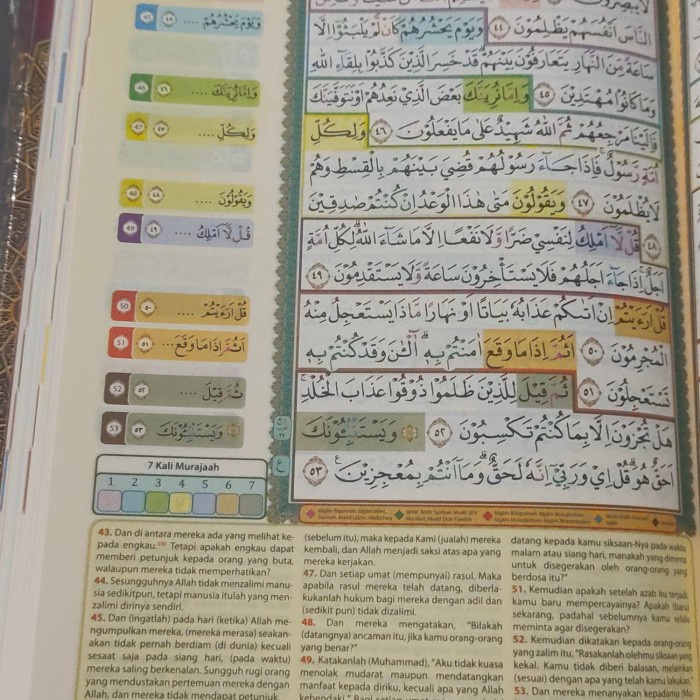 النَّاسَ اَنْفُسَهُمْ يَظْلِمُوْنَ ٤٤ وَيَوْمَ يَحْشُرُهُمْ كَاَنْ لَّمْ يَلْبَثُوْٓا اِلَّا
سَاعَةً مِّنَ النَّهَارِ يَتَعَارَفُوْنَ بَيْنَهُمْ قَدْ خَسِرَ الَّذِيْنَ كَذَّبُوْا بِلِقَاۤءِ اللّٰهِ
وَمَا كَانُوْا مُهْتَدِيْنَ ٤٥ وَاِمَّا نُرِيَنَّكَ بَعْضَ الَّذِيْ نَعِدُهُمْ اَوْ نَتَوَفَّيَنَّكَ
فَاِلَيْنَا مَرْجِعُهُمْ ثُمَّ اللّٰهُ شَهِيْدٌ عَلٰى مَا يَفْعَلُوْنَ ٤٦ وَلِكُلِّ
اُمَّةٍ رَّسُوْلٌ فَاِذَا جَاۤءَ رَسُوْلُهُمْ قُضِيَ بَيْنَهُمْ بِالْقِسْطِ وَهُمْ
لَا يُظْلَمُوْنَ ٤٧ وَيَقُوْلُوْنَ مَتٰى هٰذَا الْوَعْدُ اِنْ كُنْتُمْ صٰدِقِيْنَ
٤٨ قُلْ لَّآ اَمْلِكُ لِنَفْسِيْ ضَرًّا وَّلَا نَفْعًا اِلَّا مَا شَاۤءَ اللّٰهُ لِكُلِّ اُمَّةٍ
اَجَلٌ اِذَا جَاۤءَ اَجَلُهُمْ فَلَا يَسْتَأْخِرُوْنَ سَاعَةً وَّلَا يَسْتَقْدِمُوْنَ ٤٩
قُلْ اَرَءَيْتُمْ اِنْ اَتٰىكُمْ عَذَابُهٗ بَيَاتًا اَوْ نَهَارًا مَّاذَا يَسْتَعْجِلُ مِنْهُ
الْمُجْرِمُوْنَ ٥٠ اَثُمَّ اِذَا مَا وَقَعَ اٰمَنْتُمْ بِهٖ اٰۤلْـٰٔنَ وَقَدْ كُنْتُمْ بِهٖ
تَسْتَعْجِلُوْنَ ٥١ ثُمَّ قِيْلَ لِلَّذِيْنَ ظَلَمُوْا ذُوْقُوْا عَذَابَ الْخُلْدِ
هَلْ تُجْزَوْنَ اِلَّا بِمَا كُنْتُمْ تَكْسِبُوْنَ ٥٢ وَيَسْتَنْۢبِـُٔوْنَكَ
اَحَقٌّ هُوَ قُلْ اِيْ وَرَبِّيْٓ اِنَّهٗ لَحَقٌّ وَمَآ اَنْتُمْ بِمُعْجِزِيْنَ ٥٣
وَيَوْمَ يَحْشُرُهُمْ .... ٤٥ 45
وَاِمَّا نُرِيَنَّكَ .... ٤٦ 46
وَلِكُلِّ .... ٤٧ 47
وَيَقُوْلُوْنَ .... ٤٨ 48
قُلْ لَّآ اَمْلِكُ .... ٤٩ 49
قُلْ اَرَءَيْتُمْ .... ٥٠ 50
اَثُمَّ اِذَا مَا وَقَعَ ... ٥١ 51
ثُمَّ قِيْلَ .... ٥٢ 52
وَيَسْتَنْۢبِـُٔوْنَكَ ٥٣ 53
7 Kali Murajaah
1 2 3 4 5 6 7
43. Dan di antara mereka ada yang melihat ke-
pada engkau. Tetapi apakah engkau dapat
memberi petunjuk kepada orang yang buta,
walaupun mereka tidak memperhatikan?
44. Sesungguhnya Allah tidak menzalimi manu-
sia sedikitpun, tetapi manusia itulah yang men-
zalimi dirinya sendiri.
45. Dan (ingatlah) pada hari (ketika) Allah me-
ngumpulkan mereka, (mereka merasa) seakan-
akan tidak pernah berdiam (di dunia) kecuali
sesaat saja pada siang hari, (pada waktu)
mereka saling berkenalan. Sungguh rugi orang
yang mendustakan pertemuan mereka dengan
Allah, dan mereka tidak mendapat petunjuk.
(sebelum itu), maka kepada Kami (jualah) mereka
kembali, dan Allah menjadi saksi atas apa yang
mereka kerjakan.
47. Dan setiap umat (mempunyai) rasul. Maka
apabila rasul mereka telah datang, diberla-
kukanlah hukum bagi mereka dengan adil dan
(sedikit pun) tidak dizalimi.
48. Dan mereka mengatakan, "Bilakah
(datangnya) ancaman itu, jika kamu orang-orang
yang benar?"
49. Katakanlah (Muhammad), "Aku tidak kuasa
menolak mudarat maupun mendatangkan
manfaat kepada diriku, kecuali apa yang Allah
datang kepada kamu siksaan-Nya pada waktu
malam atau siang hari, manakah yang diminta
untuk disegerakan oleh orang-orang yang
berdosa itu?"
51. Kemudian apakah setelah azab itu terjadi,
kamu baru mempercayainya? Apakah (baru)
sekarang, padahal sebelumnya kamu selalu
meminta agar disegerakan?
52. Kemudian dikatakan kepada orang-orang
yang zalim itu, "Rasakanlah olehmu siksaan yang
kekal. Kamu tidak diberi balasan, melainkan
(sesuai) dengan apa yang telah kamu lakukan."
53. Dan mereka menanyakan kepadamu